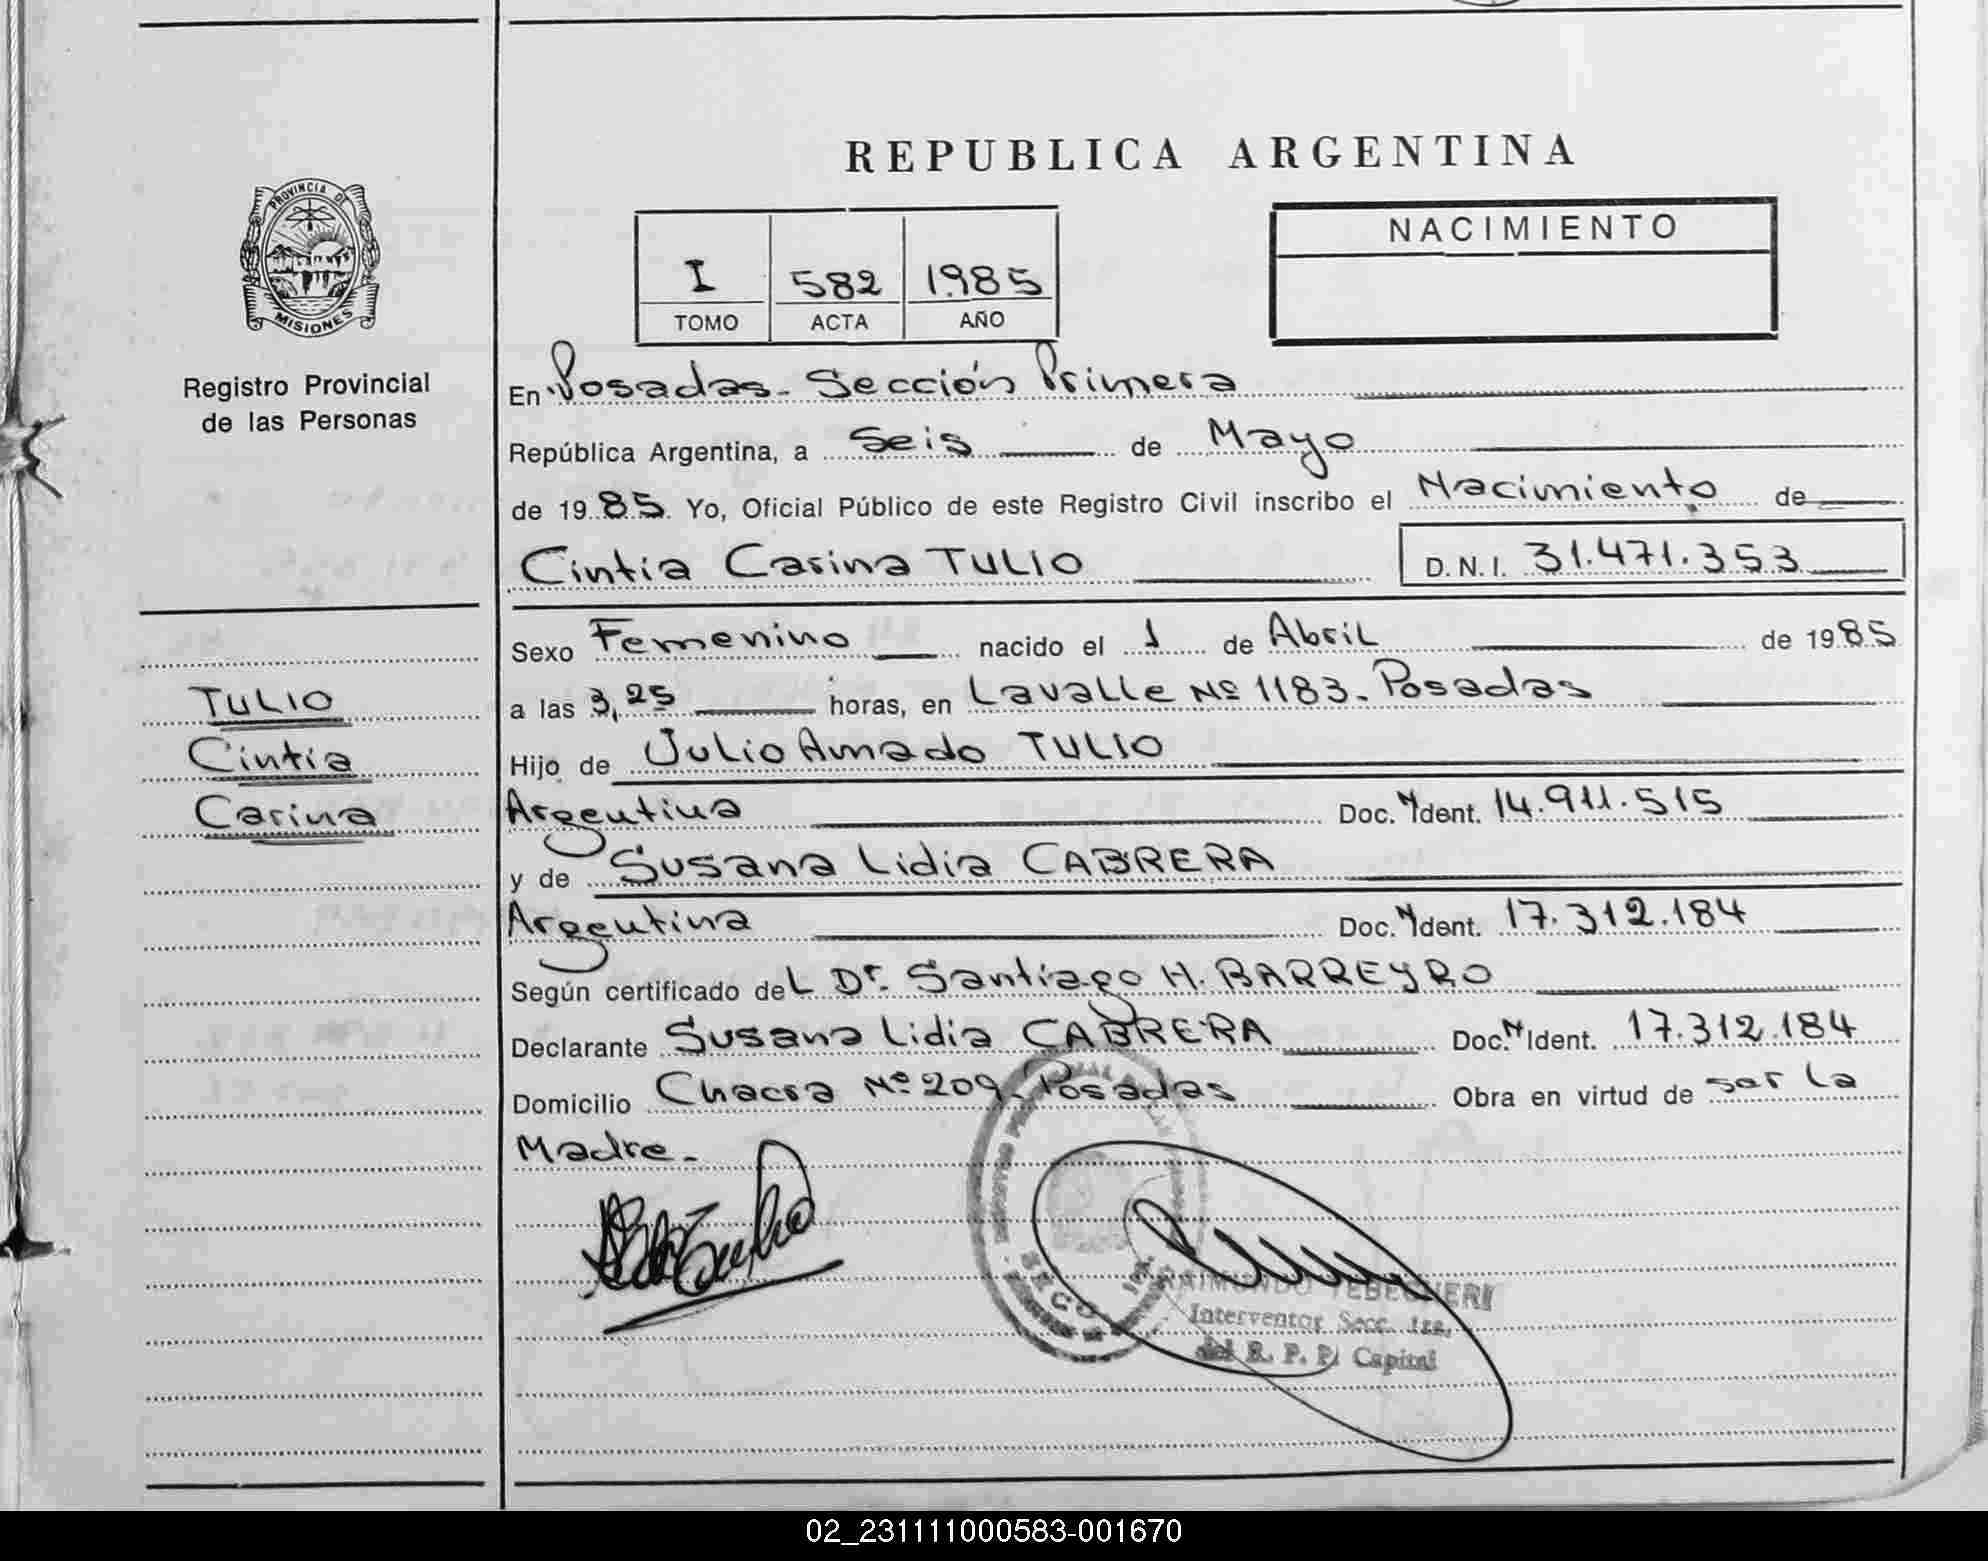 REPUBLICA ARGENTINA
PROVINCIA DE
MISIONES
Registro Provincial
de las Personas
NACIMIENTO
I 582 1985
TOMO ACTA AÑO
En Posadas - Sección Primera
República Argentina, a Seis de Mayo
de 1985. Yo, Oficial Público de este Registro Civil inscribo el Nacimiento de
Cintia Carina TULIO D.N.I. 31.471.353
Sexo Femenino nacido el 1 de Abril de 1985
a las 3,25 horas, en Lavalle Nº 1183. Posadas
Hijo de Julio Amado TULIO
Argentina Doc. Ident. 14.911.515
y de Susana Lidia CABRERA
Argentina Doc. Ident. 17.312.184
Según certificado del Dr. Santiago H. BARREYRO
Declarante Susana Lidia CABRERA Doc. Ident. 17.312.184
Domicilio Chacra Nº 209. Posadas Obra en virtud de ser la
Madre.
TULIO
Cintia
Carina
RAIMUNDO
Interventor Secc. 1ra.
del R. P. P. Capital
02_231111000583-001670